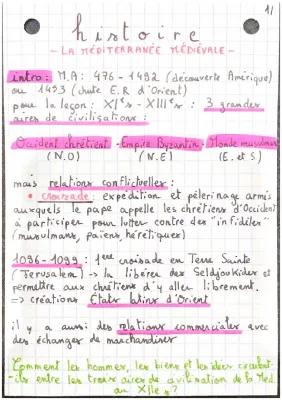 1/
histoire
- LA MÉDITERRANÉE MÉDIÉVALE -
intro: M.A: 476 - 1492 (découverte Amérique)
ou 1453 (chute E.R d'Orient)
pour la leçon: XIᵉs - XIIIᵉs: 3 grandes
aires de civilisations:
Occident chrétien - Empire Byzantin - Monde musulman
(N.O) (N.E) (E. et S)
mais relations conflictuelles:
• croisade: expédition et pélerinage armés
auxquels le pape appelle les chrétiens d'Occident
à participer pour lutter contre des "infidèles"
(musulmans, païens, hérétiques)
1096-1099: 1ère croisade en Terre Sainte
(Jerusalem) -> la libérer des Seldjoukides et
permettre aux chrétiens d'y aller librement.
=> créations États latins d'Orient
il y a aussi des relations commerciales avec
des échanges de marchandises
Comment les hommes, les biens et les idées circulent
-ils entre les trois aires de civilisation de la Méd.
au XIIe s?